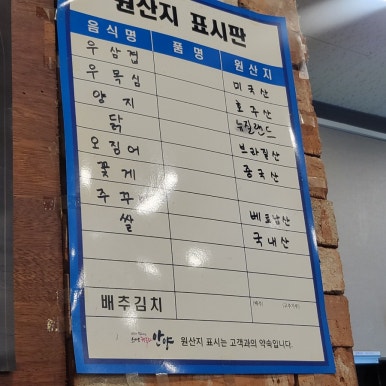 원산지 표시판
음식명 품명 원산지
우삼겹 미국산
우목심 호주산
양지 뉴질랜드
닭 브라질산
오징어 중국산
꽃게
주꾸미 베트남산
쌀 국내산
배추김치 (배추) (고추가루)
안양 원산지 표시는 고객과의 약속입니다.